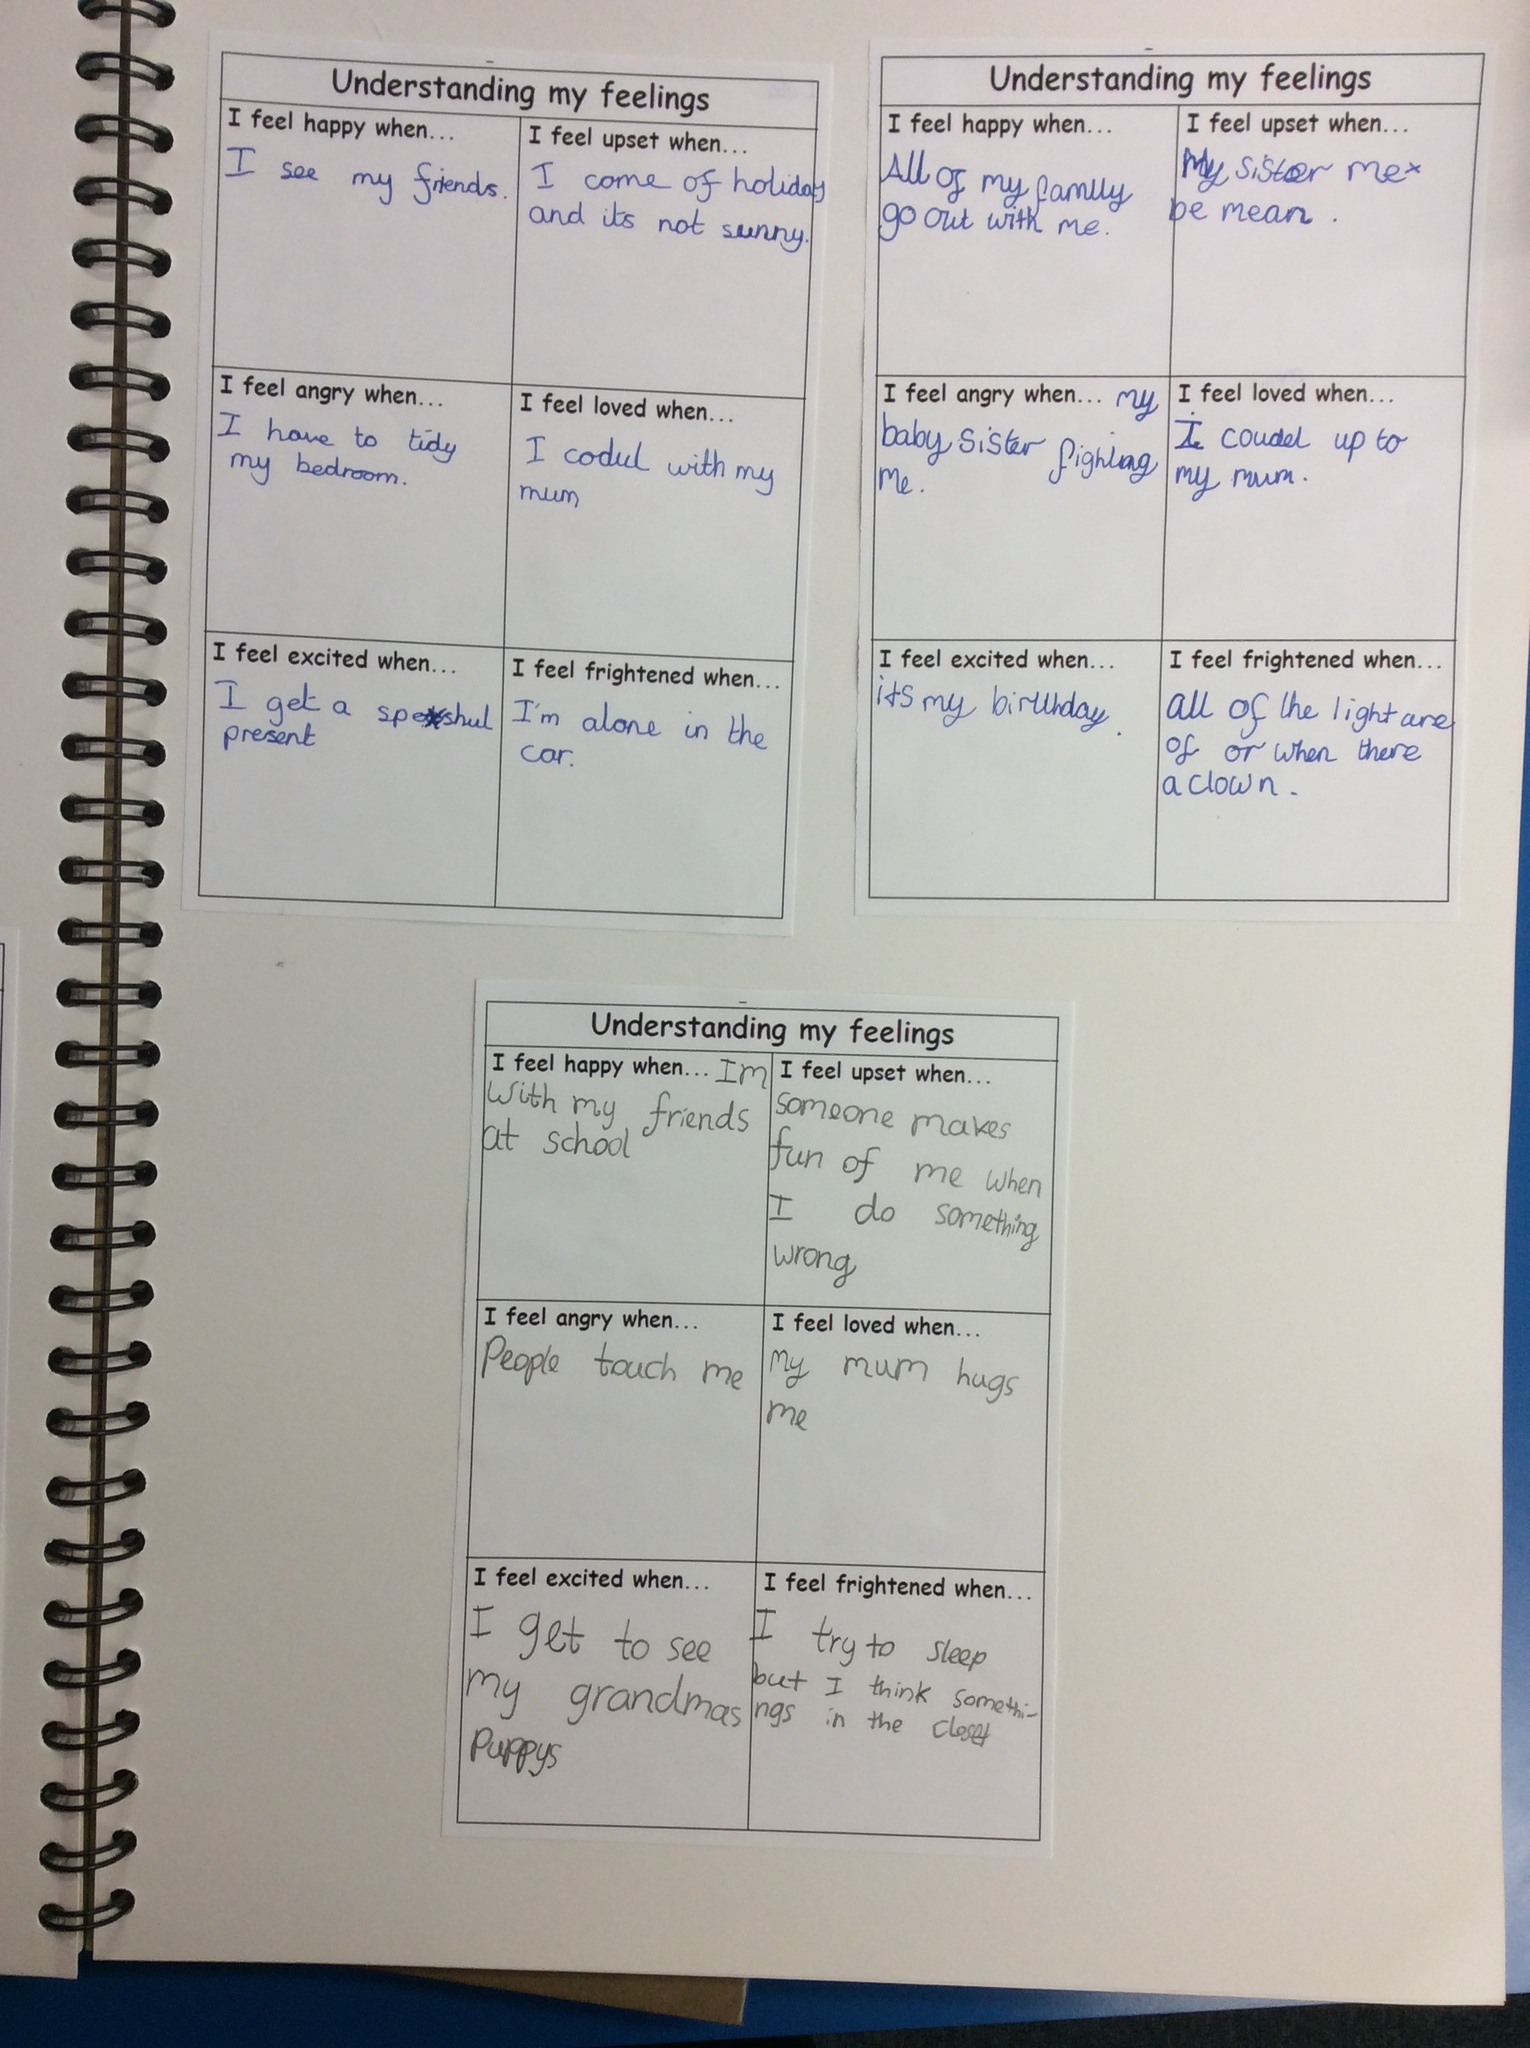 Understanding my feelings
I feel happy when...
I see my friends.
I feel upset when...
I come of holiday
and its not sunny.
I feel angry when...
I have to tidy
my bedroom.
I feel loved when...
I codul with my
mum
I feel excited when...
I get a speshul
present
I feel frightened when...
I'm alone in the
car.
Understanding my feelings
I feel happy when...
All of my family
go out with me.
I feel upset when...
My sister me
be mean.
I feel angry when... my
baby sister fighting
me.
I feel loved when...
I coudel up to
my mum.
I feel excited when...
its my birthday.
I feel frightened when...
all of the light are
of or when there
a clown.
Understanding my feelings
I feel happy when... Im
with my friends
at school
I feel upset when...
someone makes
fun of me when
I do something
wrong
I feel angry when...
People touch me
I feel loved when...
my mum hugs
me
I feel excited when...
I get to see
my grandmas
puppys
I feel frightened when...
I try to sleep
but I think somethi-
ngs in the closet